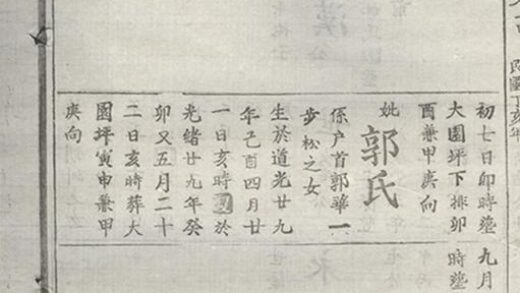 民國丁亥年
初七日卯時塟
大園坪下排卯
酉兼甲庚向
妣郭氏
係户首郭華一
步松之女
生於道光廿九
年己酉四月廿
一日亥時於
光緒廿九年癸
卯又五月二十
二日亥時葬大
園坪寅申兼甲
庚向
九月
時塟